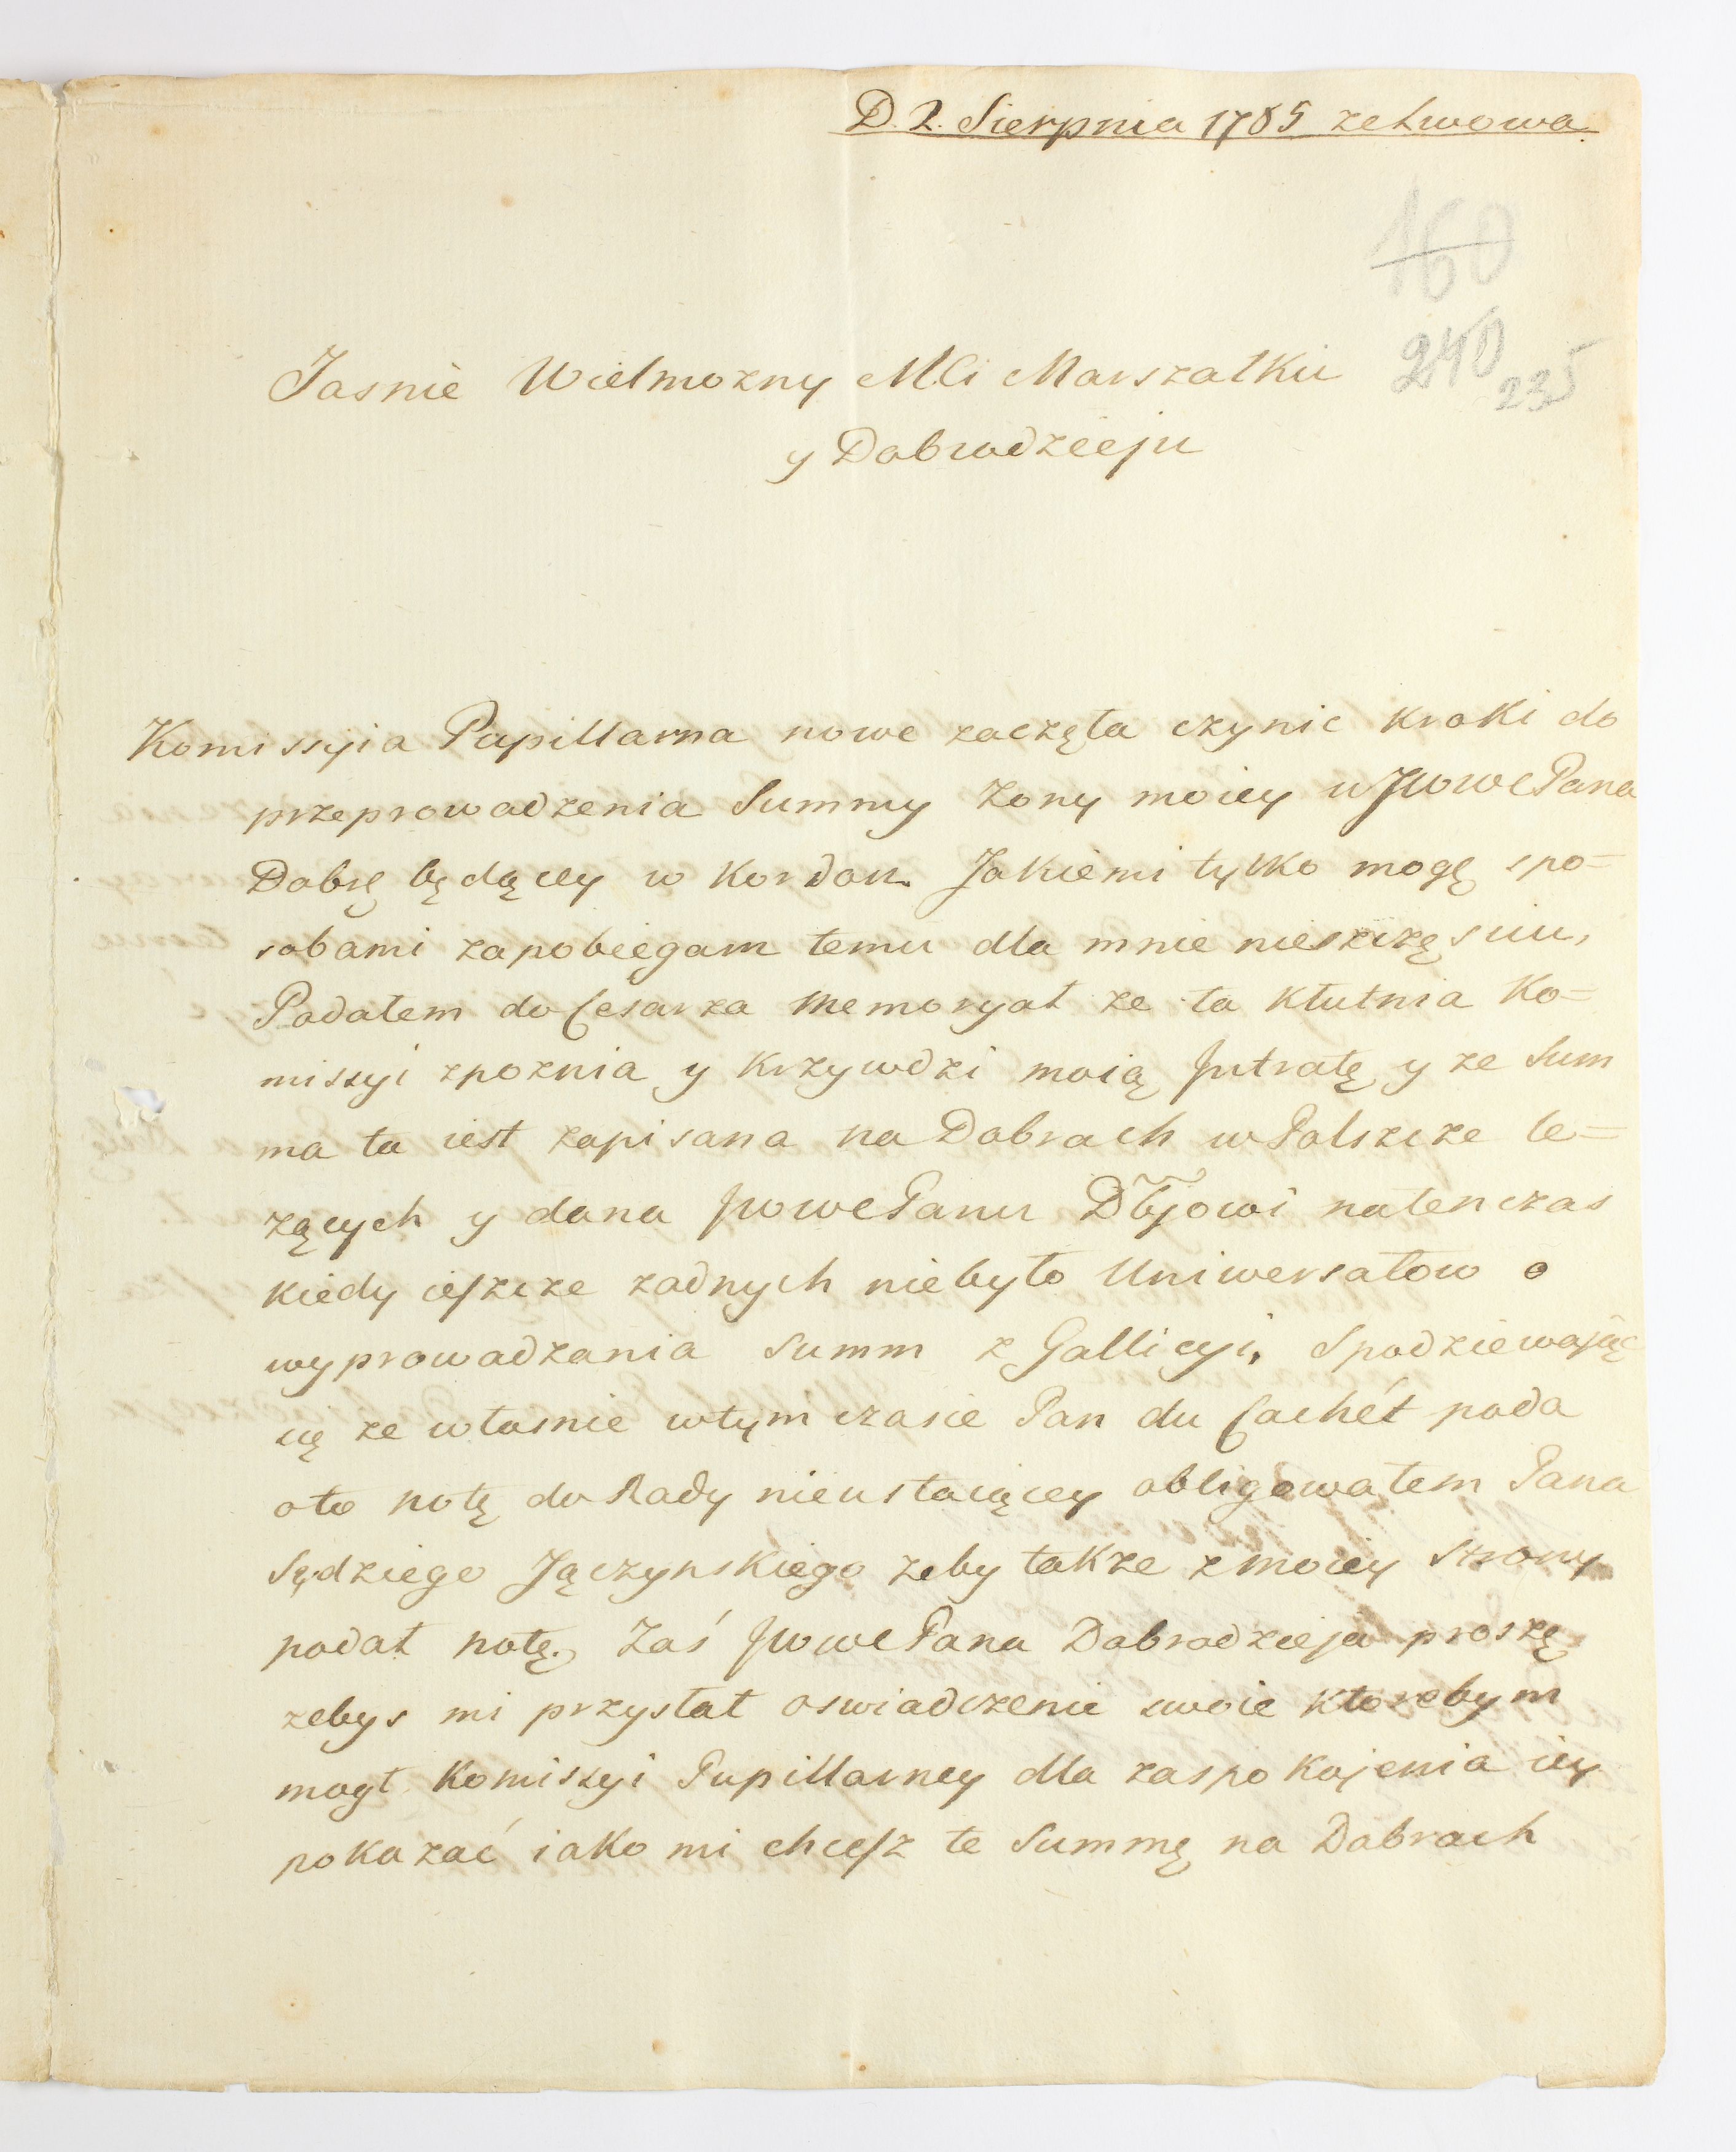 D. 2. Sierpnia 1785 ze Lwowa.
160
240
235
Jasnie Wielmozny Mci Marszałku
y Dobrodzieju
Komissyia Pupillarna nowe zaczęła czynic kroki do
przeprowadzenia Summy Zony moiey u JWWcPana
Dobrę będącey w Kordon. Jakiemi tylko mogę spo=
sobami zapobiegam temu dla mnie nieszczęsciu,
Podałem do Cesarza Memoryał ze ta Kłutnia Ko=
missyi zpoznia y Krzywdzi moią Jntratę y ze Sum
ma ta iest zapisana na Dobrach w Polszcze le=
zących y dana JWWcPanu Dbjowi natenczas
kiedy ieszcze zadnych niebyło Uniwersałow o
wyprowadzania Summ z Gallicyi, Spodziewając
się ze własnie wtym czasie Pan du Cachét poda
oto notę do Rady nieustaiącey obligowałem Pana
Sędziego Jączynskiego zeby takze z moiey strony
podał notę. Zaś JWWcPana Dobrodzieja proszę
zebys mi przysłał oswiadczenie swoie ktorebym
mogł Komissyi Pupillarney dla zaspokojenia iey
pokazać iako mi chcesz te Summę na Dobrach